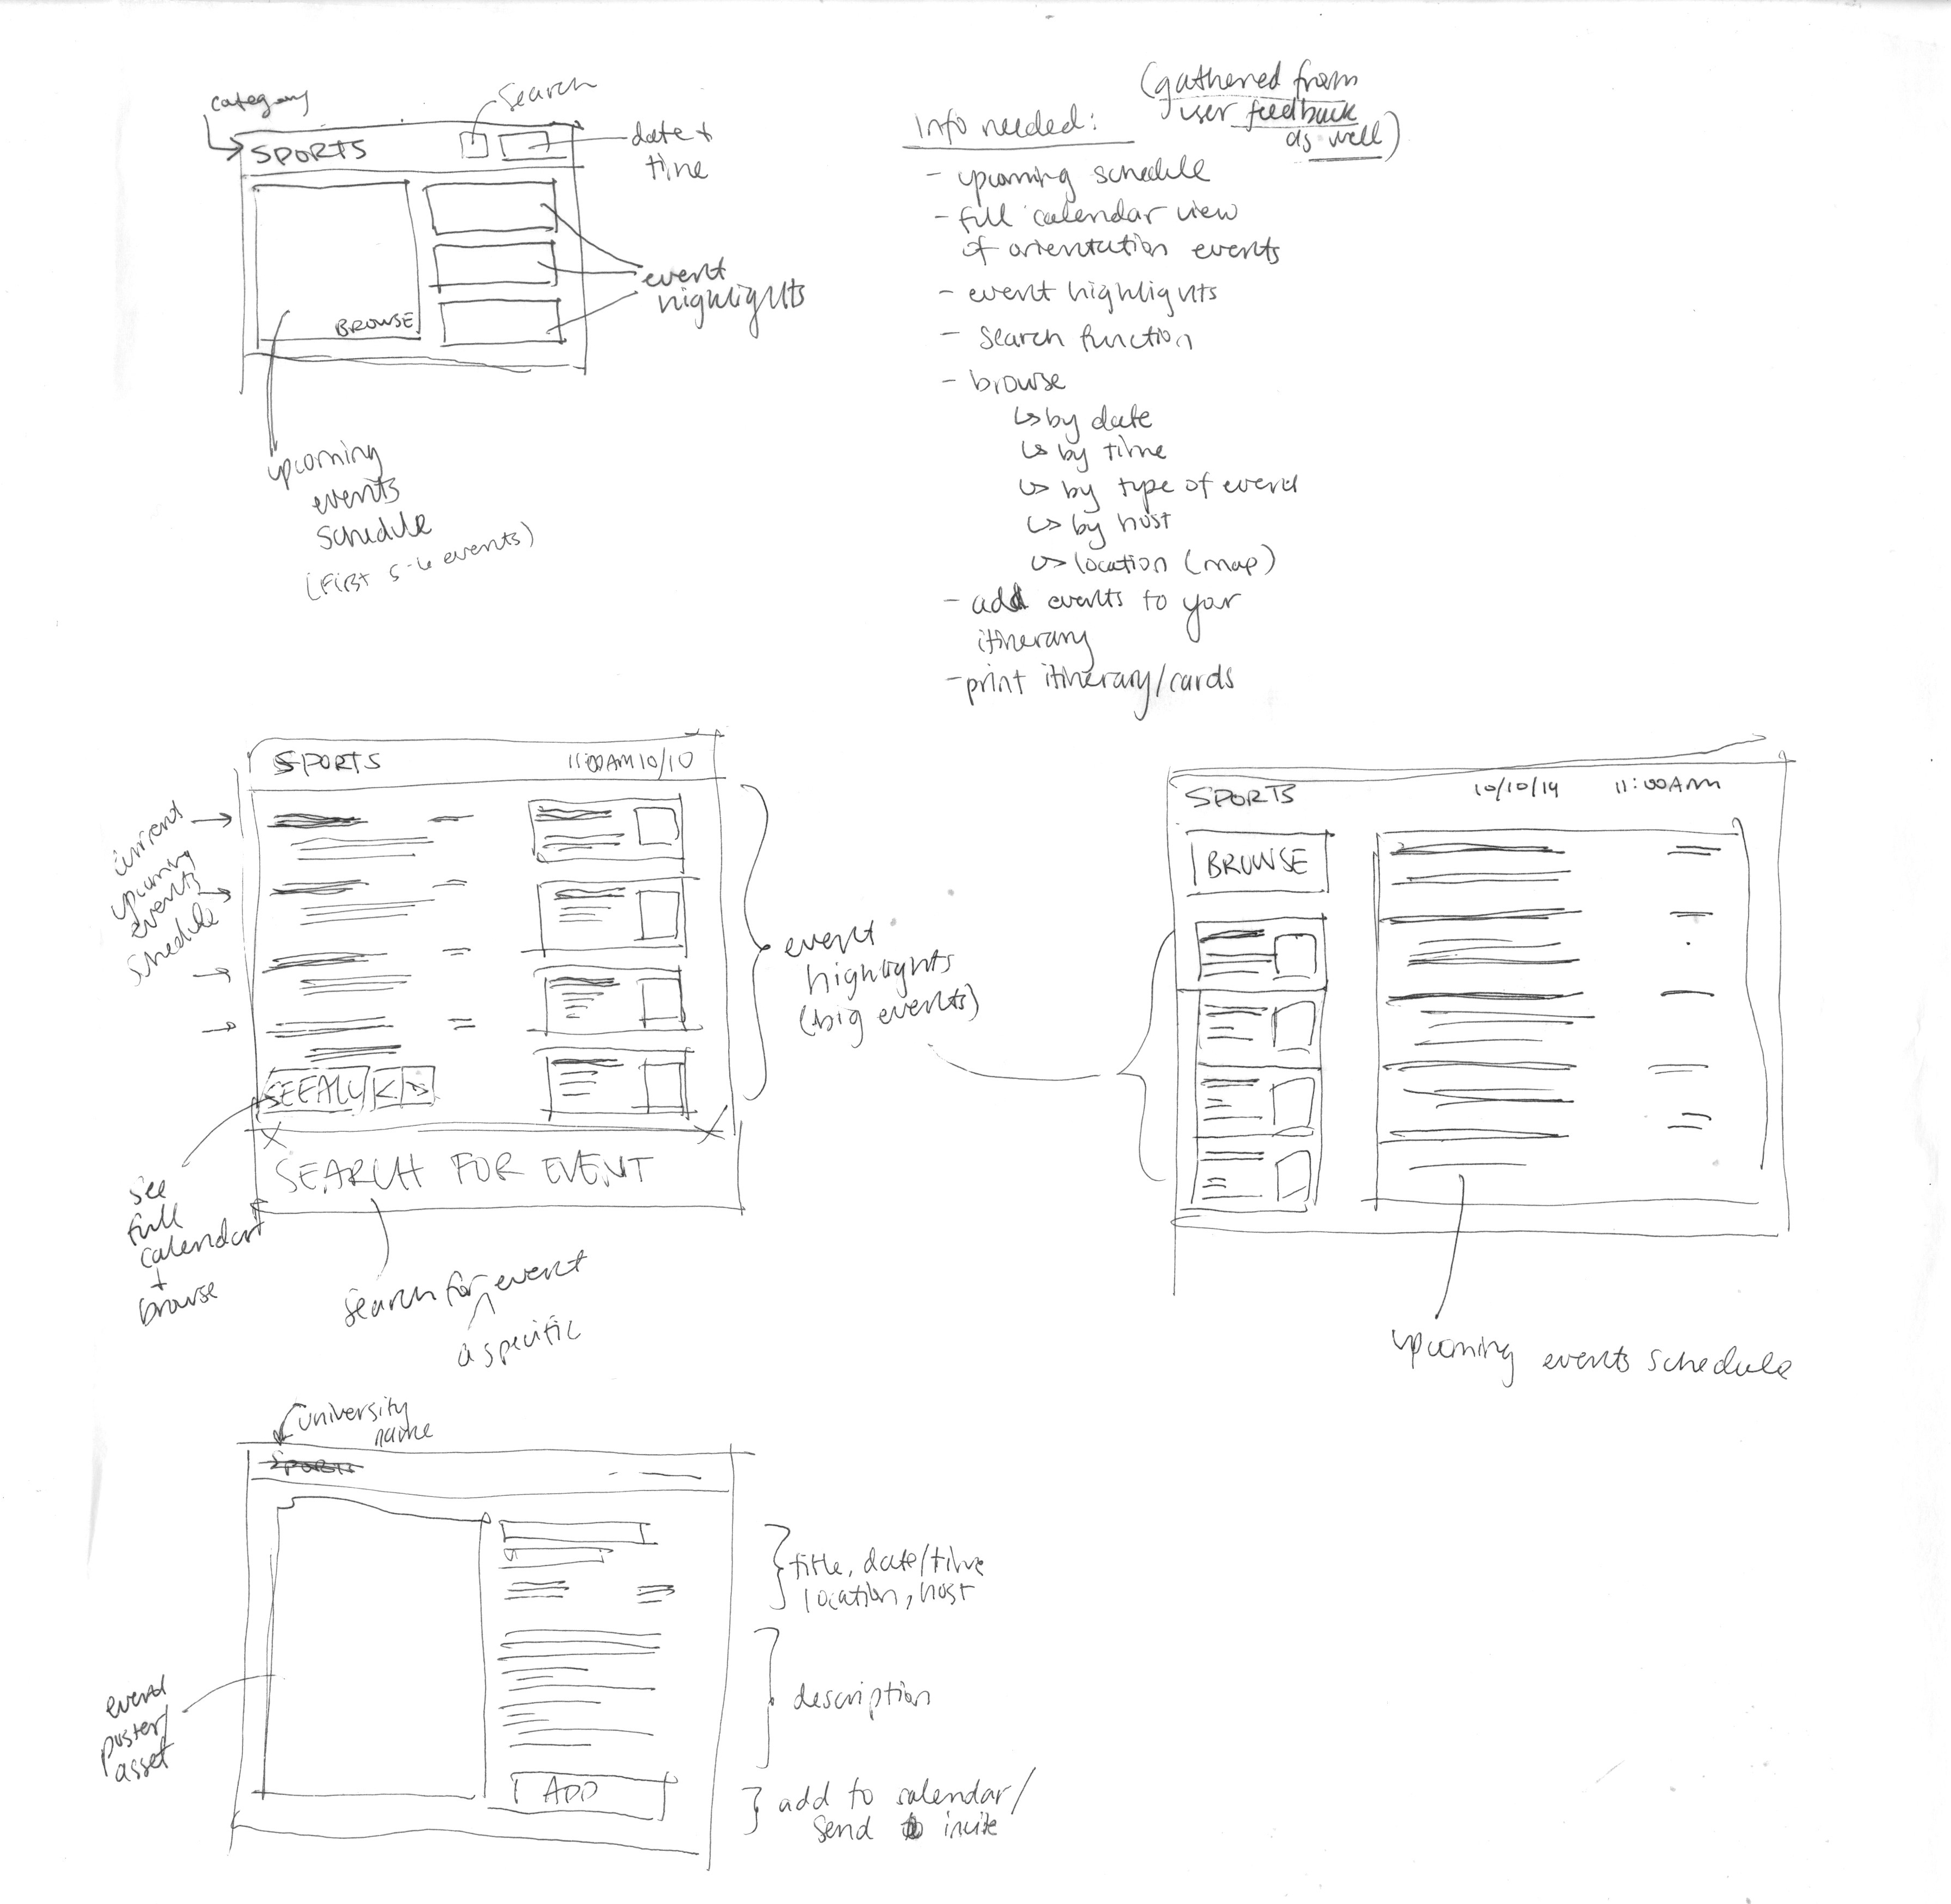 category
search
SPORTS
date +
time
BROWSE
event
highlights
upcoming
events
schedule
(FIRST 5-6 events)
(gathered from
user feedback
as well)
Info needed:
- upcoming schedule
- full calendar view
of orientation events
- event highlights
- search function
- browse
↳ by date
↳ by time
↳ by type of event
↳ by host
↳ location (map)
- add events to your
itinerary
- print itinerary/cards
SPORTS 11:00AM 10/10
current
upcoming
events
schedule
event
highlights
(big events)
SEE ALL < >
SEARCH FOR EVENT
see
full
calendar
+
browse
search for event
a specific
SPORTS 10/10/14 11:00AM
BROWSE
upcoming events schedule
university
name
SPORTS
title, date/time
location, host
description
event
poster/
asset
ADD
add to calendar/
send invite